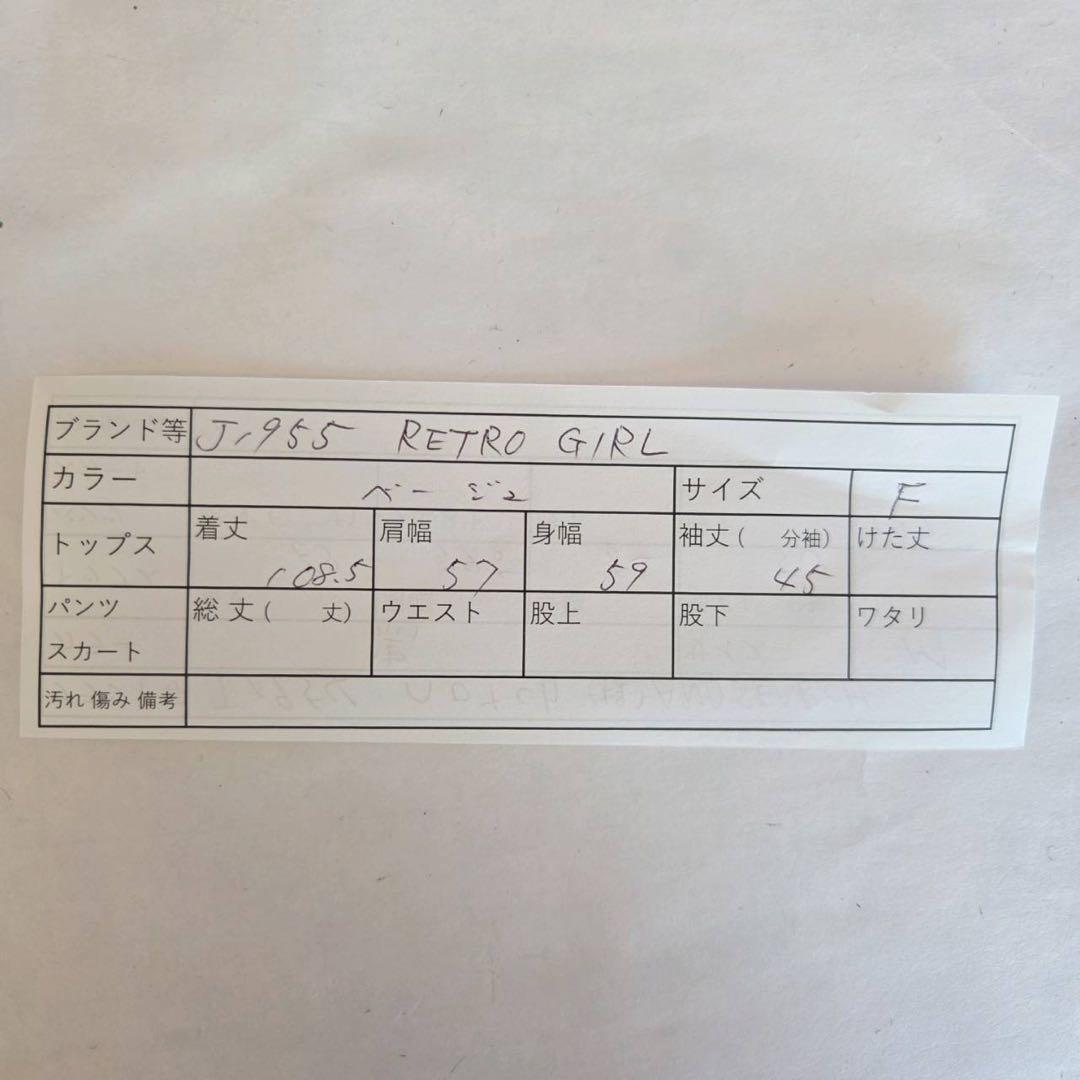 ブランド等 J1955 RETRO GIRL
カラー ベージュ サイズ F
トップス 着丈 108.5 肩幅 57 身幅 59 袖丈( 分袖) 45 けた丈
パンツ スカート 総丈( 丈) ウエスト 股上 股下 ワタリ
汚れ 傷み 備考